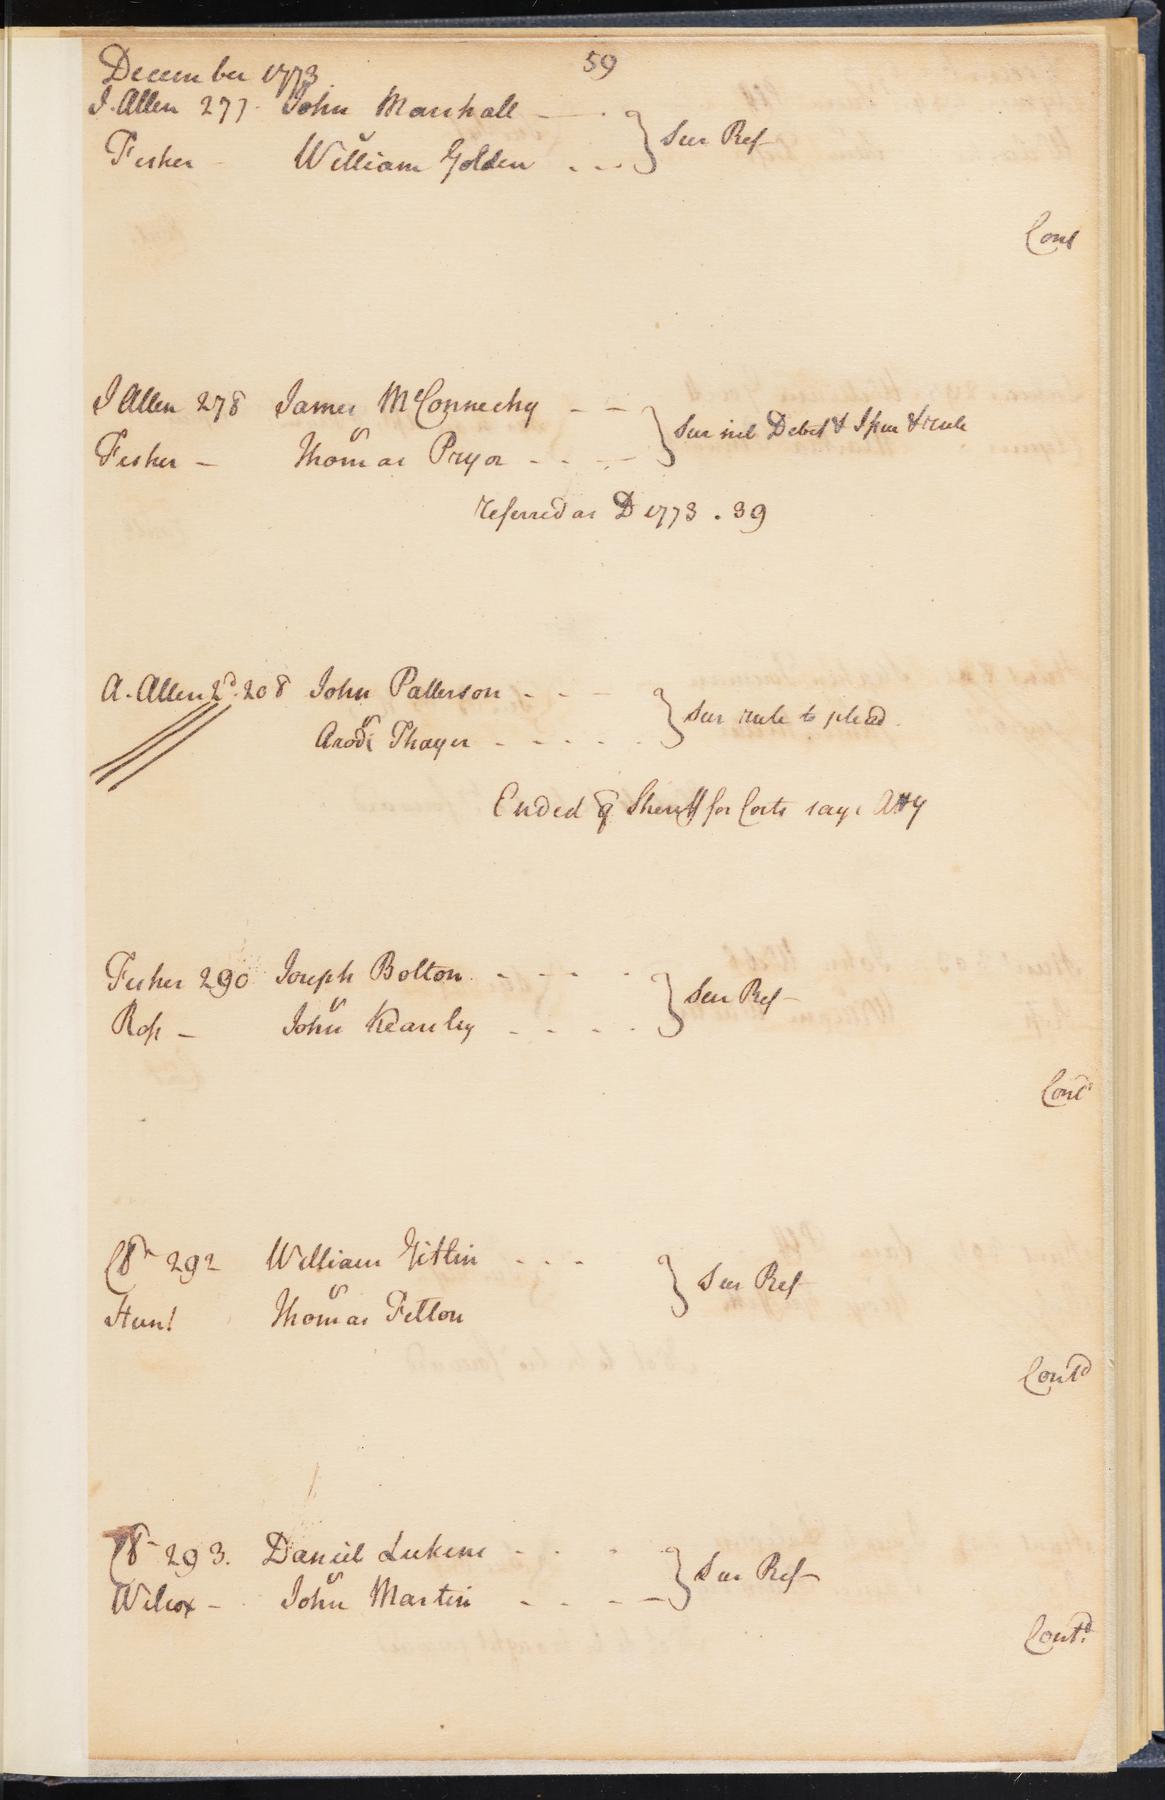 December 1773
59
J. Allen 277. John Marshall
v
Fisher William Golden
} Sur Ref
Cont
J Allen 278 James McConnechy
vs
Fisher Thomas Pryor
} Sur nil Debet & Issue & rule
referred as D 1773. 39
A. Allen 2d. 208 John Patterson
vs
Arodi Thayer
} Sur rule to plead.
Ended Sheriff for Costs says Atty
Fisher 290 Joseph Bolton
vs
Ross John Kearsley
} Sur Ref
Contd
292 William Gitlin
vs
Hunt Thomas Felton
} Sur Ref
Contd
293. Daniel Lukens
vs
Wilcox John Martin
} Sur Ref
Contd.